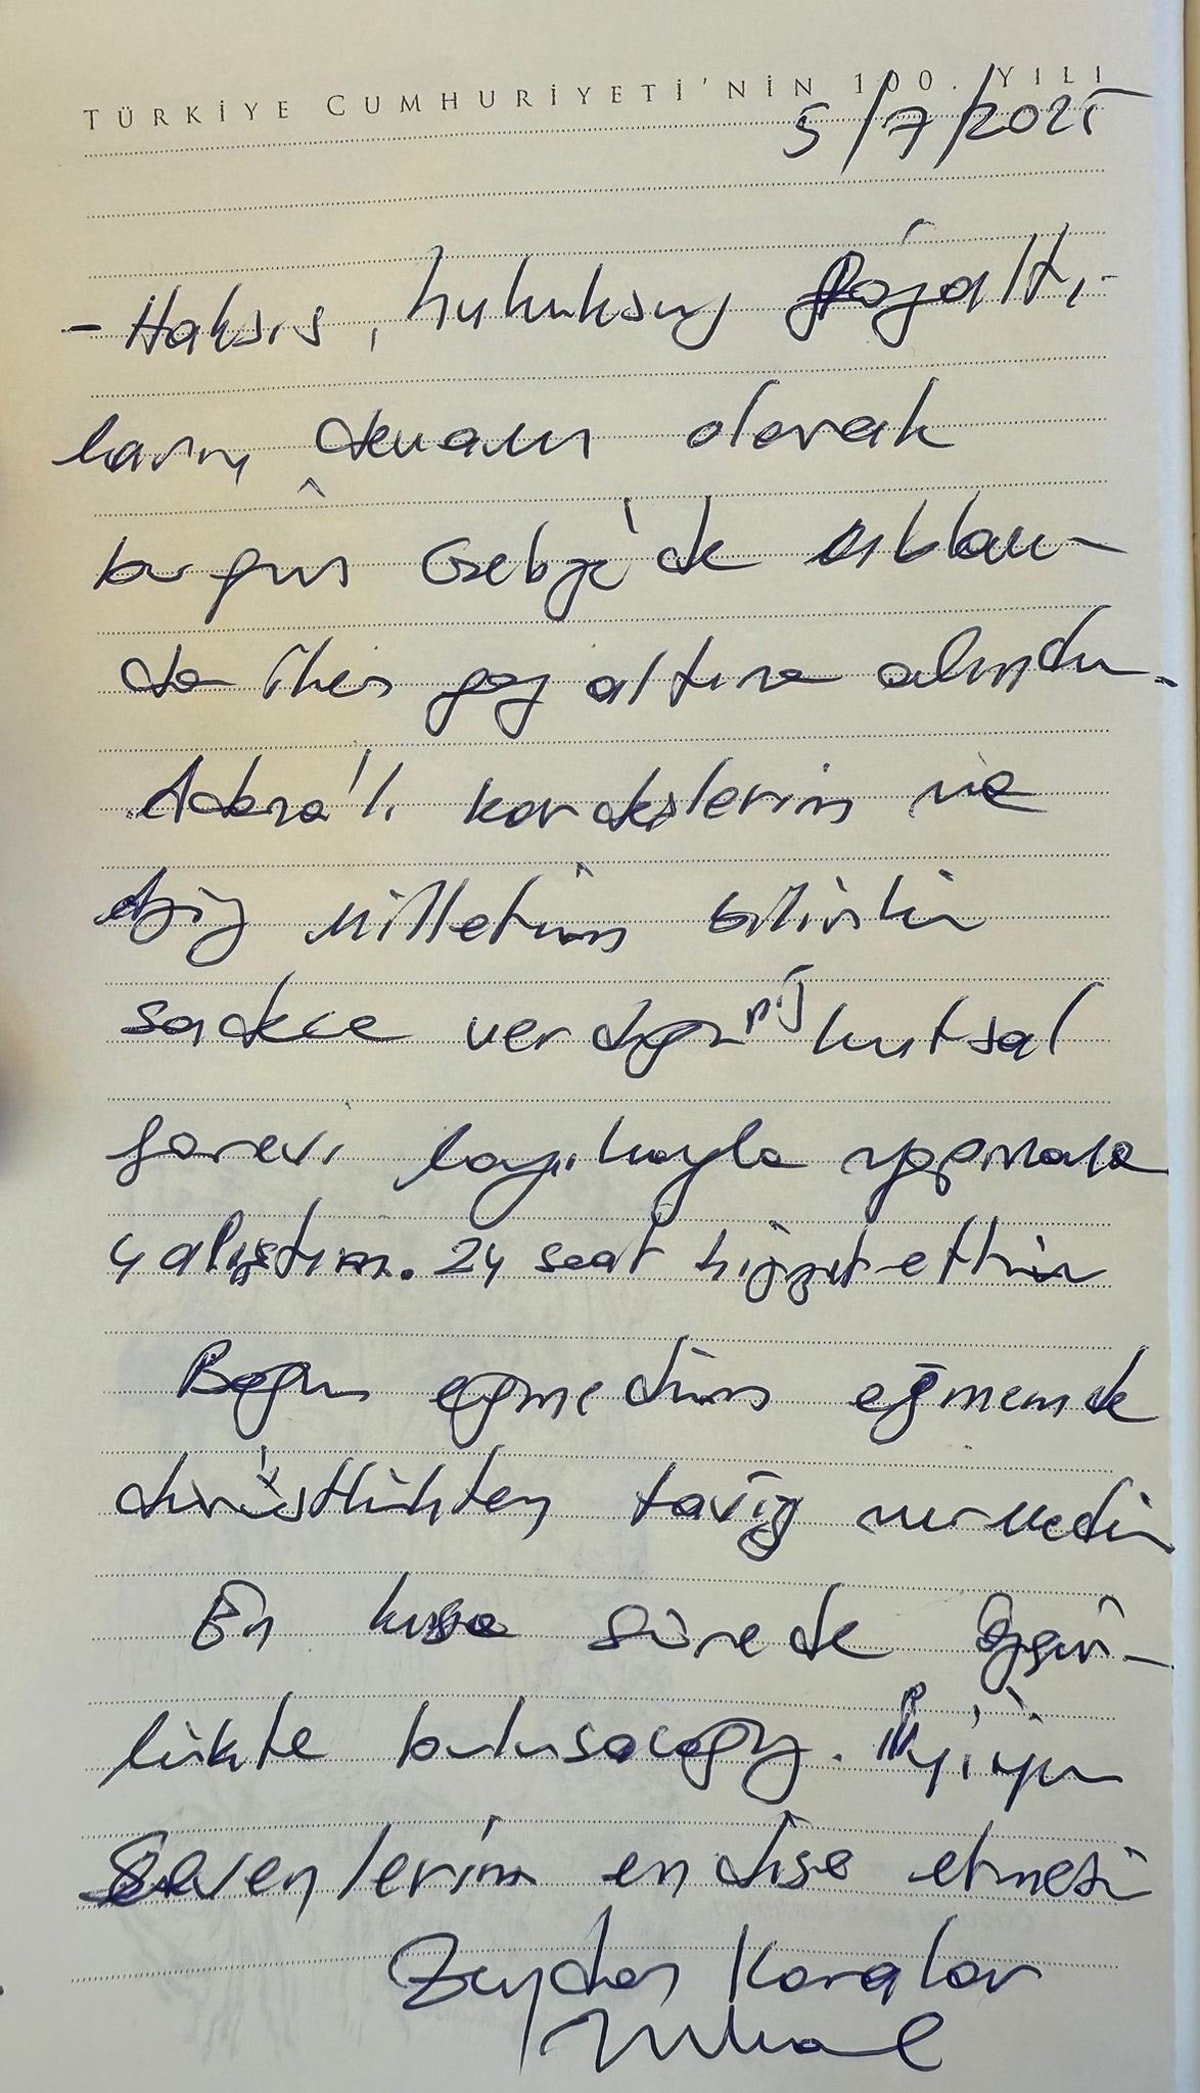 TÜRKİYE CUMHURİYETİ'NİN 100. YILI
5/7/2025
- Haksız, hukuksuz gözaltı-
ların devamı olarak
bugün Gebze'de
da gözaltına alındım.
Adana'lı kardeşlerim ve
aziz milletim bilsin ki
sadece verdiğiniz kutsal
görevi layıkıyla yapmaya
çalıştım. 24 saat hizmet ettim
Boyun eğmedim eğmem de
dürüstlükten taviz vermedim
En kısa sürede özgür-
lükte buluşacağız. İyiyim
Sevenlerim endişe etmesin
Zeydan Karalar